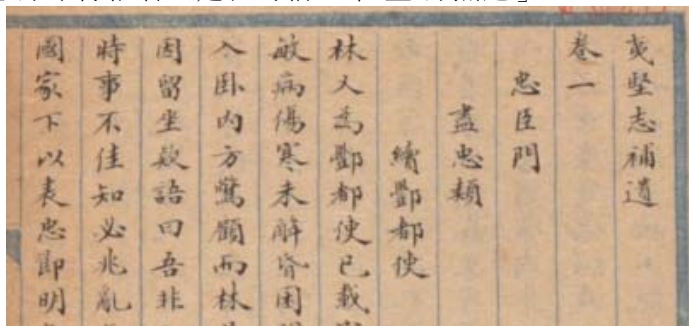 夷堅志補遺
卷一
忠臣門
盡忠類
續酆都使
林乂爲酆都使已載
敏病傷寒未解昏困
入臥内方驚顧而林
因留坐款語曰吾非
時事不佳知必兆亂
國家下以表忠即明